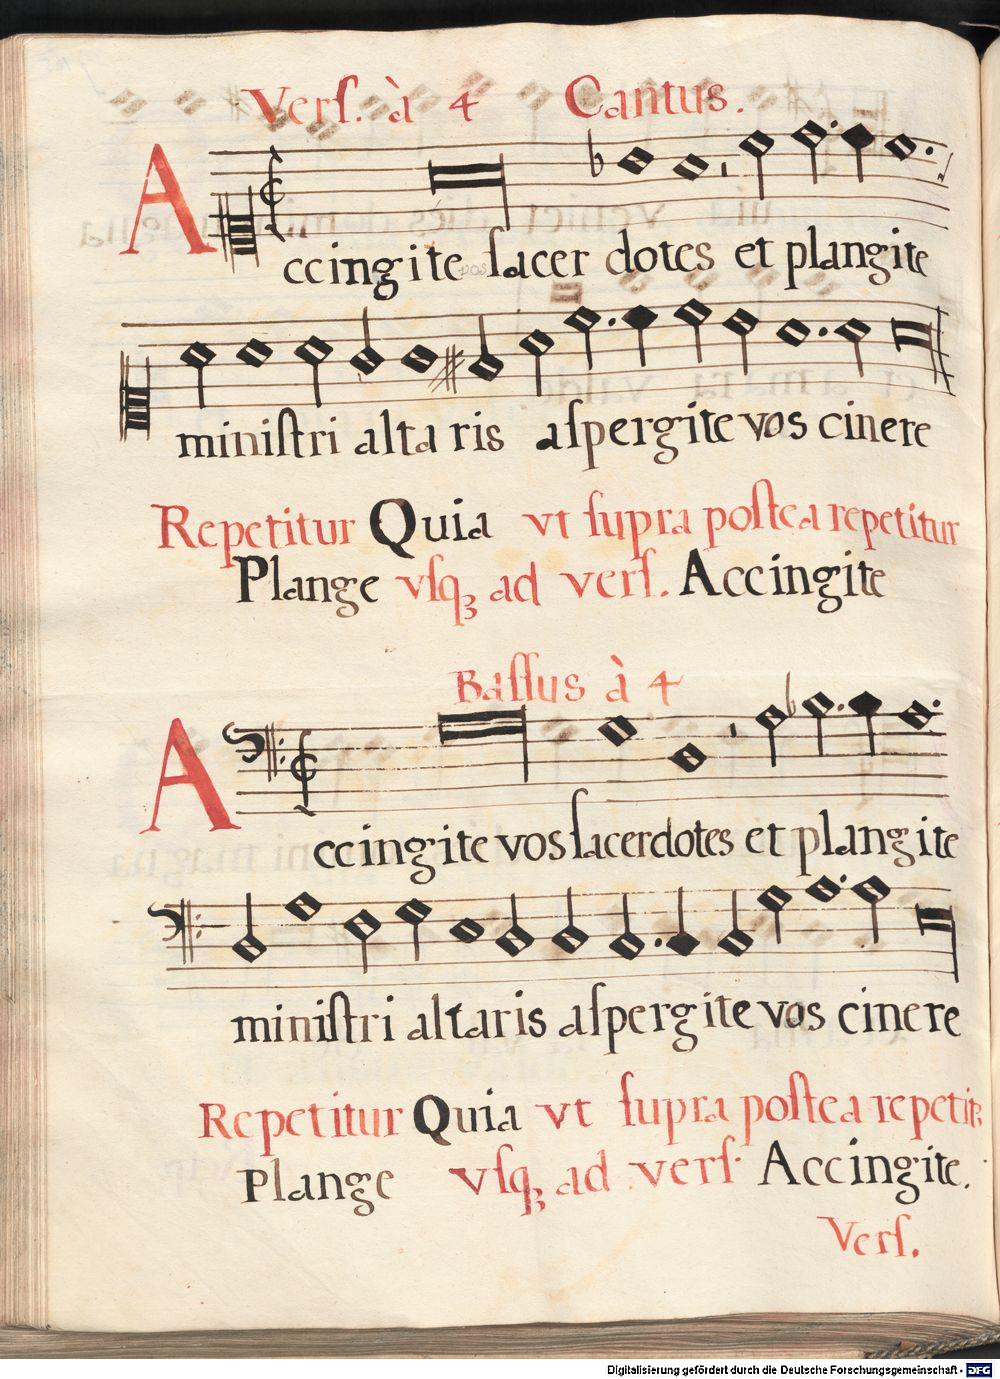 Verſ. à 4 Cantus.
Accingite ſacer dotes et plangite
miniſtri alta ris aſpergite vos cinere
Repetitur Quia vt ſupra poſtea repetitur
Plange vſqꝫ ad verſ. Accingite
Baſſus à 4
Accingite vos ſacerdotes et plangite
miniſtri altaris aſpergite vos cinere
Repetitur Quia vt ſupra poſtea repetitꝫ
Plange vſqꝫ ad verſ. Accingite.
Verſ.
Digitalisierung gefördert durch die Deutsche Forschungsgemeinschaft - DFG